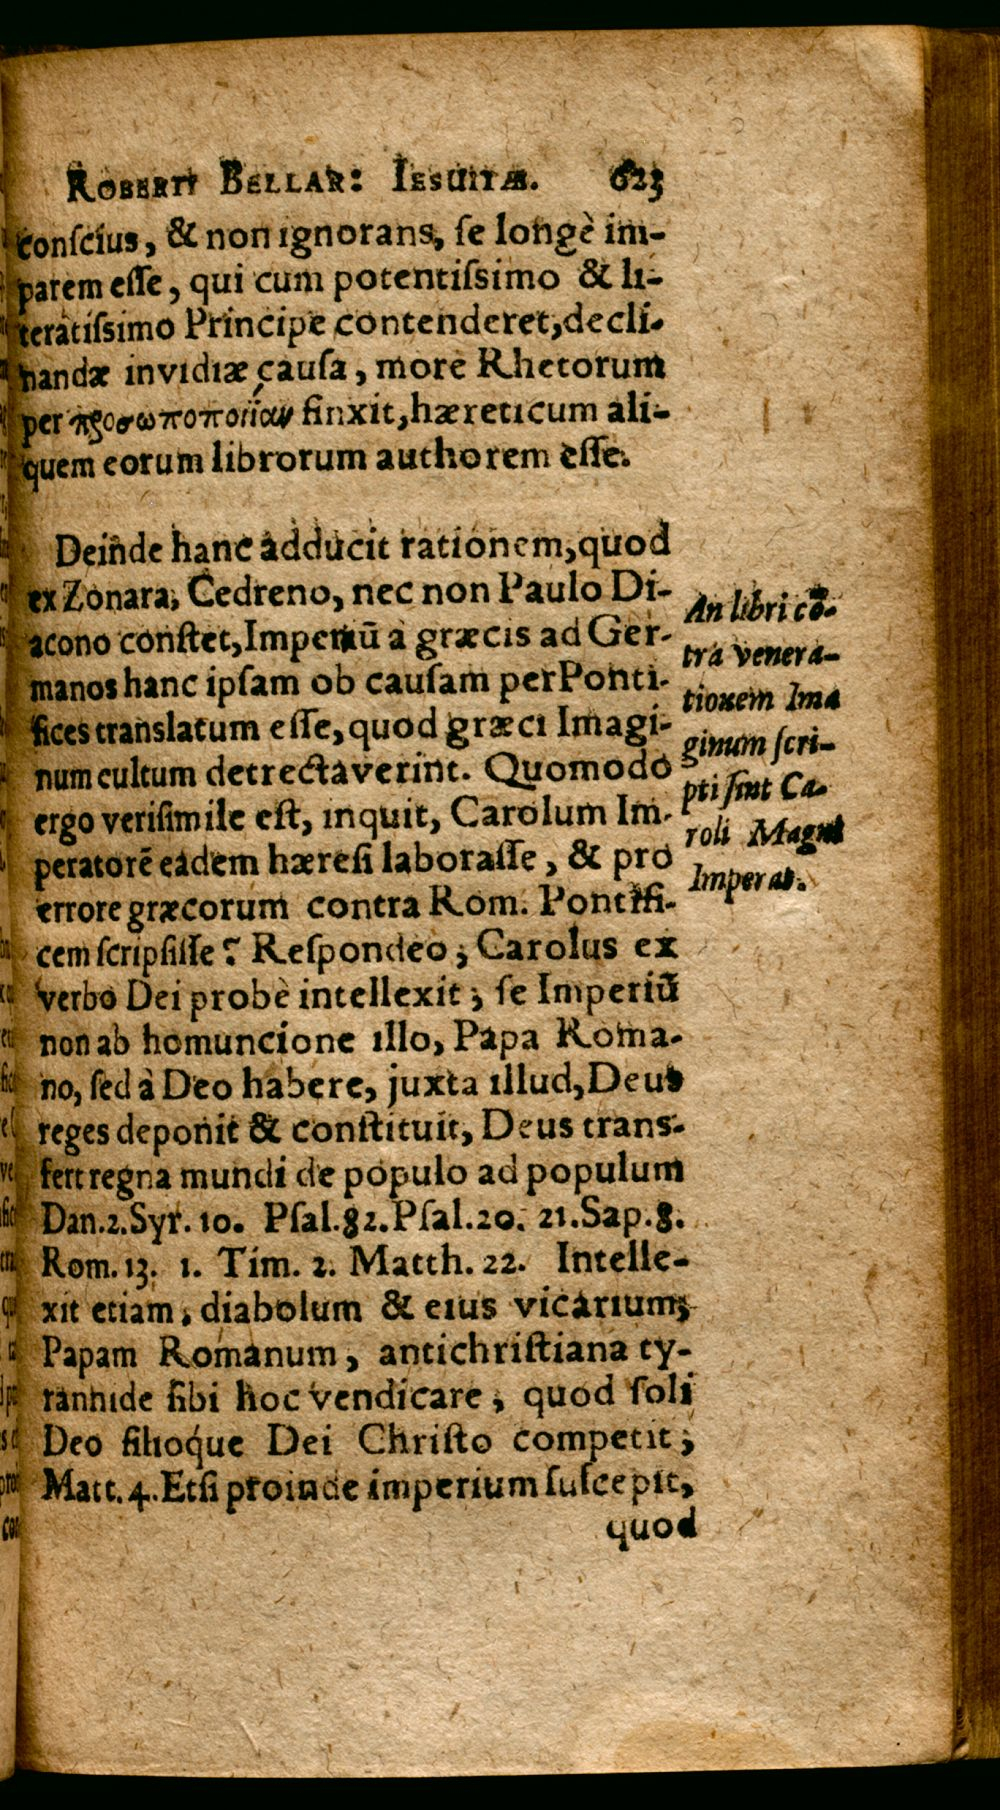 ROBERTI BELLAR: IESUITÆ. 623
conſcius, & non ignorans, ſe longè im-
parem eſſe, qui cum potentiſsimo & li-
teratiſsimo Principe contenderet, decli-
nandæ invidiæ cauſa, more Rhetorum
per προσωποποιΐαν finxit, hæreticum ali-
quem eorum librorum authorem eſſe.
Deinde hanc adducit rationem, quod
ex Zonara, Cedreno, nec non Paulo Di-
acono conſtet, Imperiũ a græcis ad Ger-
manos hanc ipſam ob cauſam per Ponti-
fices translatum eſſe, quod græci Imagi-
num cultum detrectaverint. Quomodo
ergo veriſimile eſt, inquit, Carolum Im-
peratorẽ eadem hæreſi laboraſſe, & pro
errore græcorum contra Rom. Pontifi-
cem ſcripſiſſe? Reſpondeo; Carolus ex
verbo Dei probè intellexit; ſe Imperiũ
non ab homuncione illo, Papa Roma-
no, ſed à Deo habere, juxta illud, Deus
reges deponit & conſtituit, Deus trans-
fert regna mundi de populo ad populum
Dan. 2. Syr. 10. Pſal. 82. Pſal. 20. 21. Sap. 8.
Rom. 13. 1. Tim. 2. Matth. 22. Intelle-
xit etiam, diabolum & eius vicarium,
Papam Romanum, antichriſtiana ty-
rannide ſibi hoc vendicare, quod ſoli
Deo filioq́ue Dei Chriſto competit;
Matt. 4. Etſi proinde imperium ſuſcepit,
quod
An libri cō-
tra venera-
tionem Ima
ginum ſcri-
pti ſint Ca-
roli Magni
Imperat.